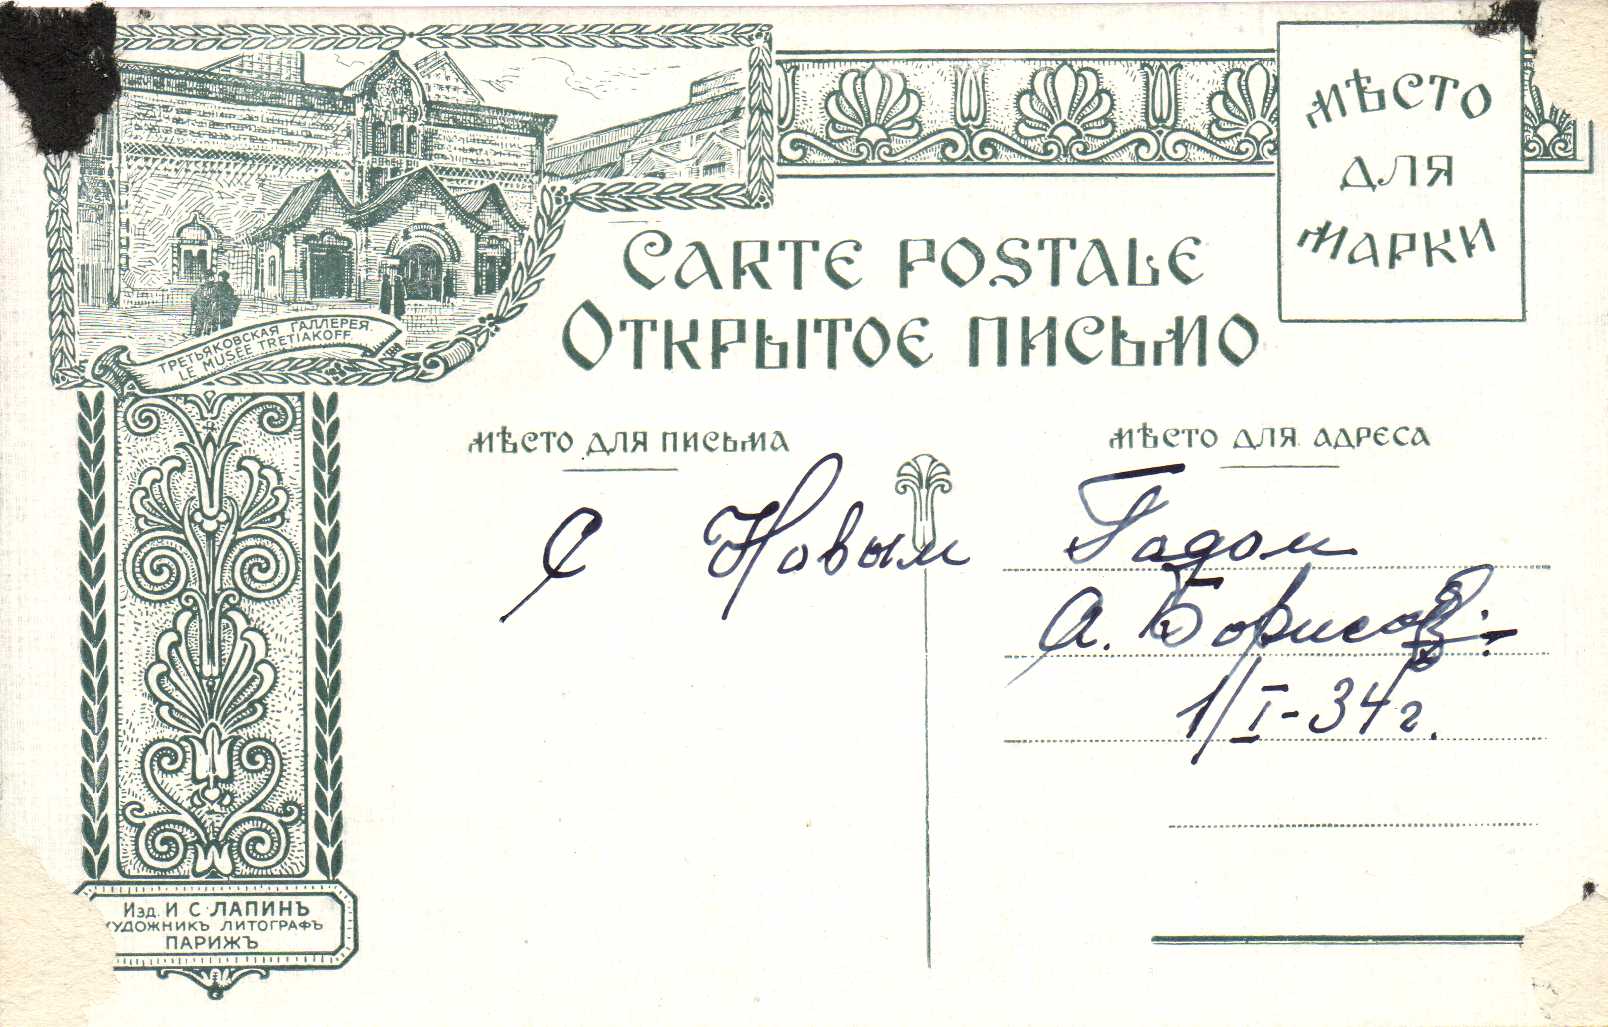 МѢСТО
ДЛЯ
МАРКИ
CARTE POSTALE
ОТКРЫТОЕ ПИСЬМО
ТРЕТЬЯКОВСКАЯ ГАЛЛЕРЕЯ.
LE MUSÉE TRETIAKOFF
МѢСТО ДЛЯ ПИСЬМА
МѢСТО ДЛЯ АДРЕСА
С Новым Гадом
А. Борисов
1/I-34 г.
Изд. И С ЛАПИНЪ
ХУДОЖНИКЪ ЛИТОГРАФЪ
ПАРИЖЪ